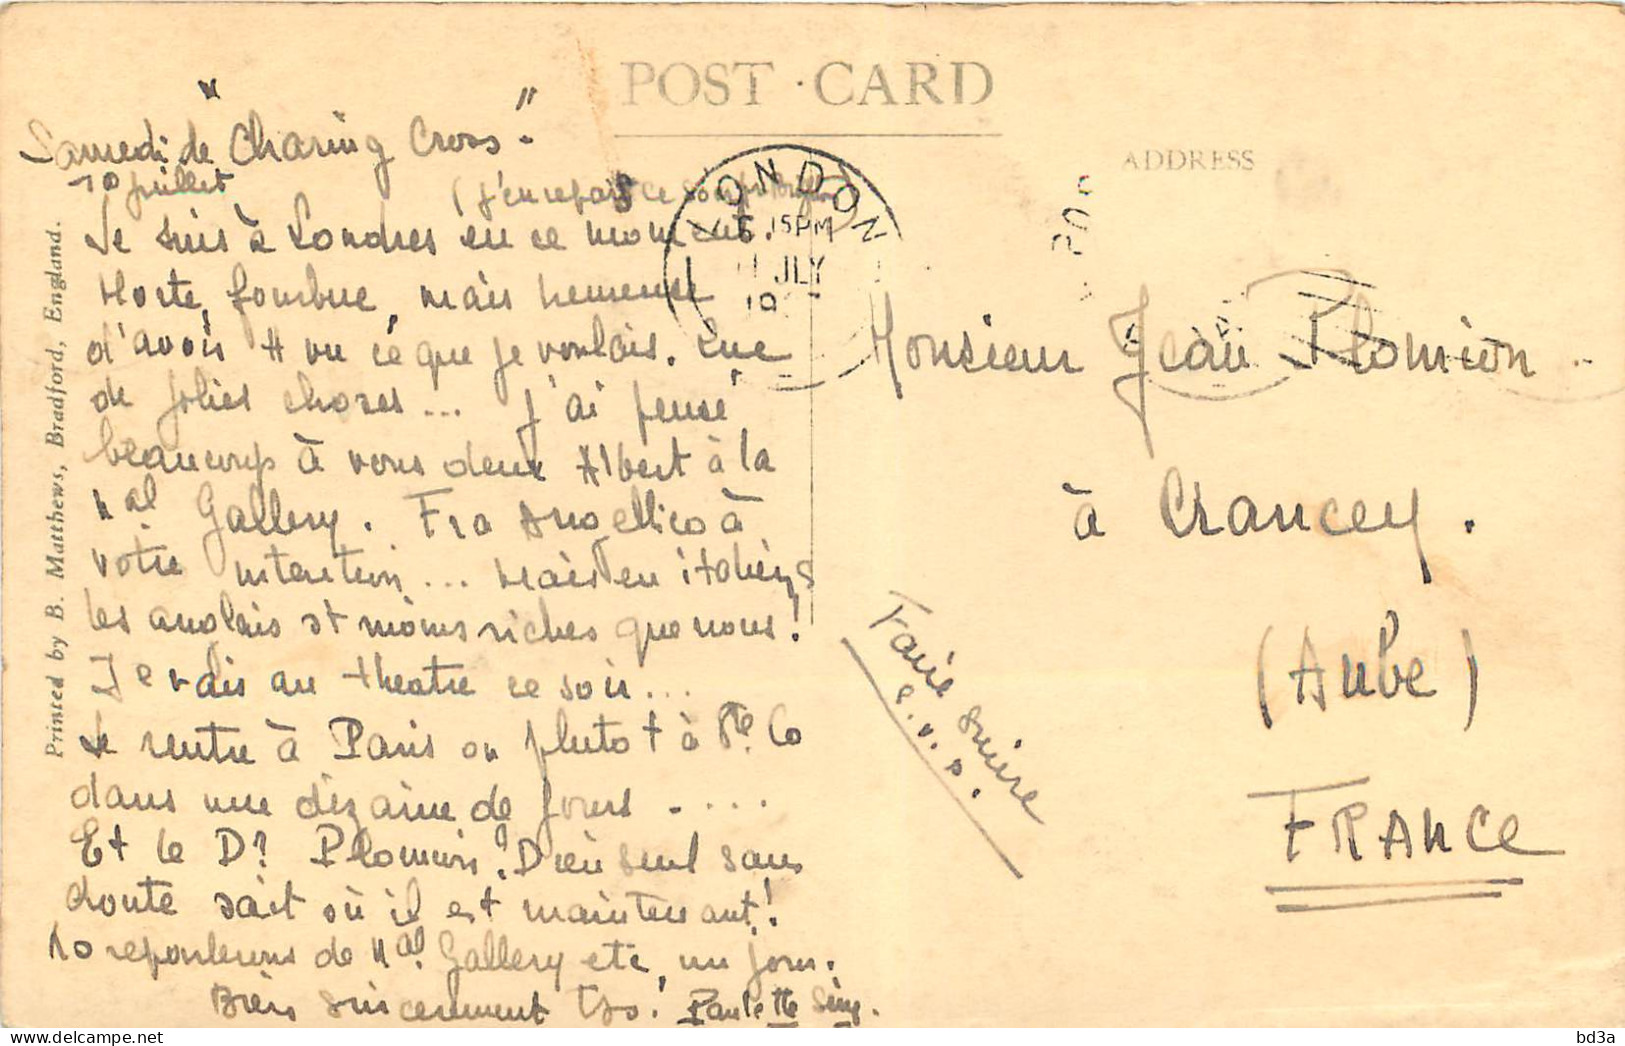 POST · CARD
ADDRESS
Samedi de "Charing Cross".
10 juillet
(j'en repars ce soir
Je suis à Londres en ce moment.
Morte, fourbue, mais heureuse
d'avoir vu ce que je voulais. Que
de jolies choses... J'ai pensé
beaucoup à vous deux Albert à la
Nal Gallery. Fra Angelico à
votre intention... Mais en italiens
les anglais st moins riches que nous!
Je vais au theatre ce soir...
Je rentre à Paris ou plutot à Pte Co
dans une dizaine de jours - ....
Et le Dr Plomion? Dieu seul sans
doute sait où il est maintenant!
Ns reparlerons de Nal Gallery etc, un jour.
Bien sincerement Paulette
LONDON
6.15PM
11 JLY
19
Monsieur Jean Plomion
à Crancey.
(Aube)
FRANCE
Faire suivre
s.v.p.
Printed by B. Matthews, Bradford, England.
bd3a